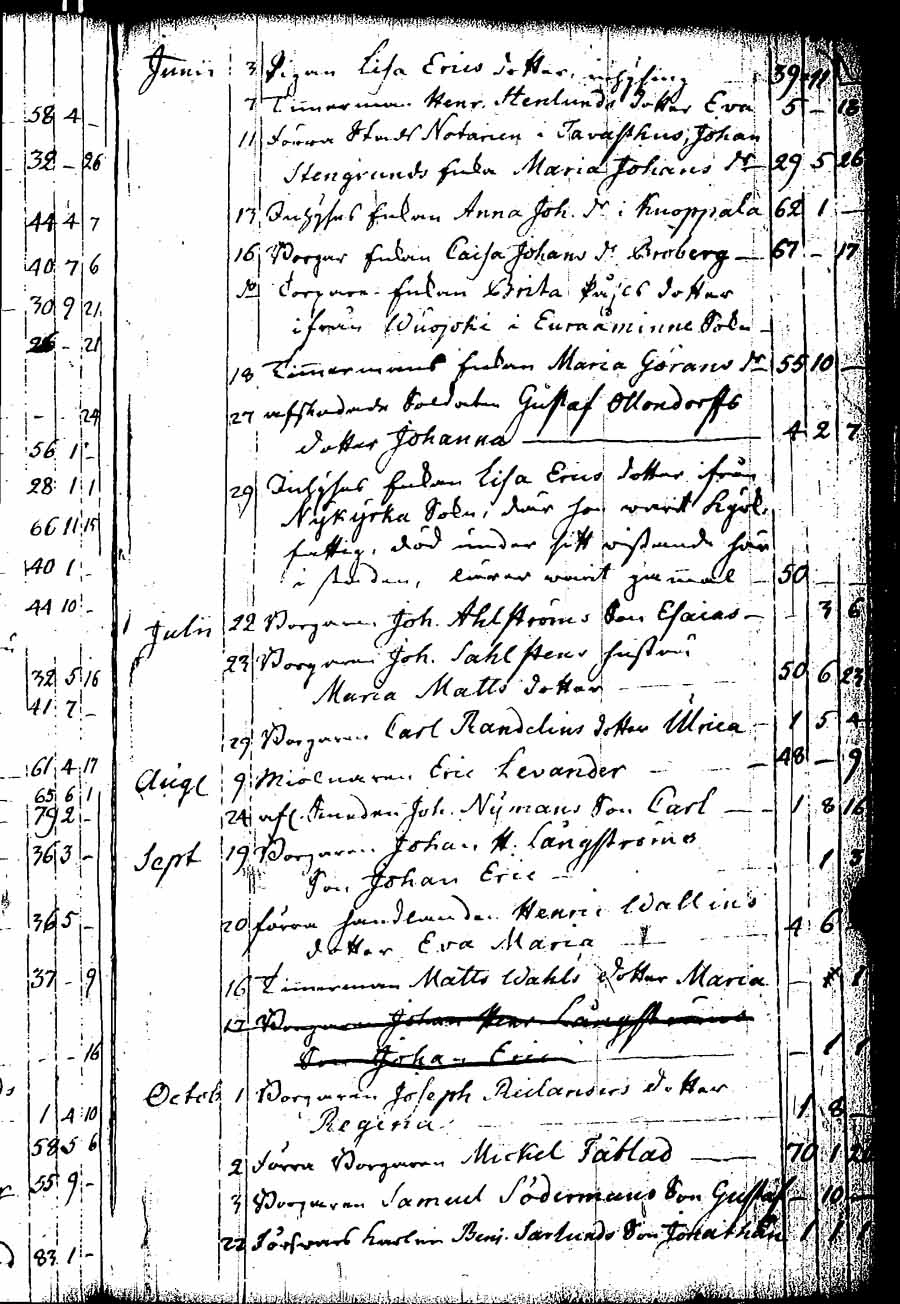 Junii 3 Pigan Lisa Erics dotter, inhysing 39 11
58 4 - 7 Timerman Henr. Stenlunds dotter Eva 5 - 18
11 Förra Stads Notarien i Tavasthus, Johan
38 - 26 Stengrunds Enka Maria Johans dr 29 5 26
44 4 7 13 Inhyses Enkan Anna Joh. dr i Knoppala 62 1 -
40 7 6 16 Borgar Enkan Caisa Johans dr Broberg 67 - 17
Torpare Enkan Brita dotter
30 9 21 ifrån Wuojoki i Euraåminne Sokn
26 - 21
18 Timermans Enkan Maria Görans dr 55 10 -
- - 24 27 afskedade Soldaten Gustaf Ollondorffs
56 1 - dotter Johanna 4 2 7
28 1 1 29 Inhyses Enkan Lisa Erics dotter ifrån
66 11 15 Nykyrka Sokn, där hon warit
fattig, död under sitt wistande här
40 1 - i staden, lärer warit gammal 50 - -
44 10 - Julii 22 Borgaren Joh. Ahlströms Son Esaias - 3 6
32 5 16 23 Borgaren Joh. Sahlstens hustru 50 6 23
41 7 - Maria Matts dotter
29 Borgaren Carl Randelins dotter Ulrica 1 5 4
61 4 17 Aug 9 Eric Levander 48 - 9
65 6 1
79 2 - 24 afl. Smeden Joh. Nymans Son Carl 1 8 16
36 3 - Sept 19 Borgaren Johan H. Långströms 1 3
Son Johan Eric
36 5 - 20 förra handlanden Henric Wallins 4 6
dotter Eva Maria
37 - 9 16 Timerman Matts Wahls dotter Maria
17 Borgaren Johan Henr Långströms
- - 16 Son Johan Eric - 1 1
Octob 1 Borgaren Joseph dotter
1 4 10 Regina 1 8 -
58 5 6 2 Förra Borgaren Mickel Täblad 70 1
55 9 - 3 Borgaren Samuel Södermans Son Gustaf - 10 -
83 1 - 22 Förswars Karlen Benj. Sarlunds Son Jonathan 1 1 1